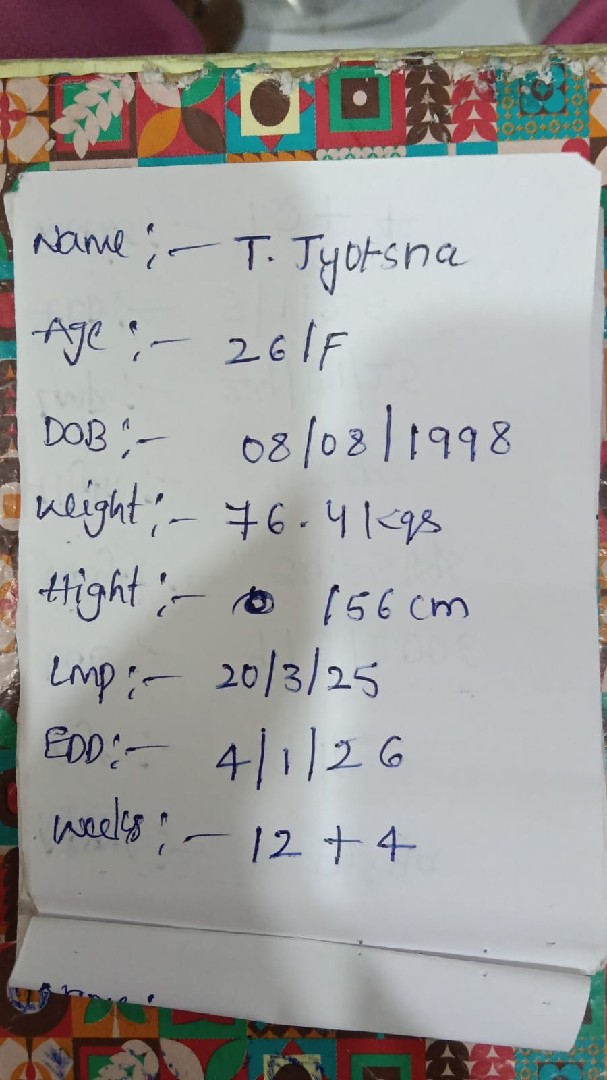 Name :- T. Jyotsna
Age :- 26/F
DOB :- 08/08/1998
Weight :- 76.4 kgs
Hight :- 156 cm
Lmp :- 20/3/25
EDD :- 4/1/26
Weeks :- 12 + 4